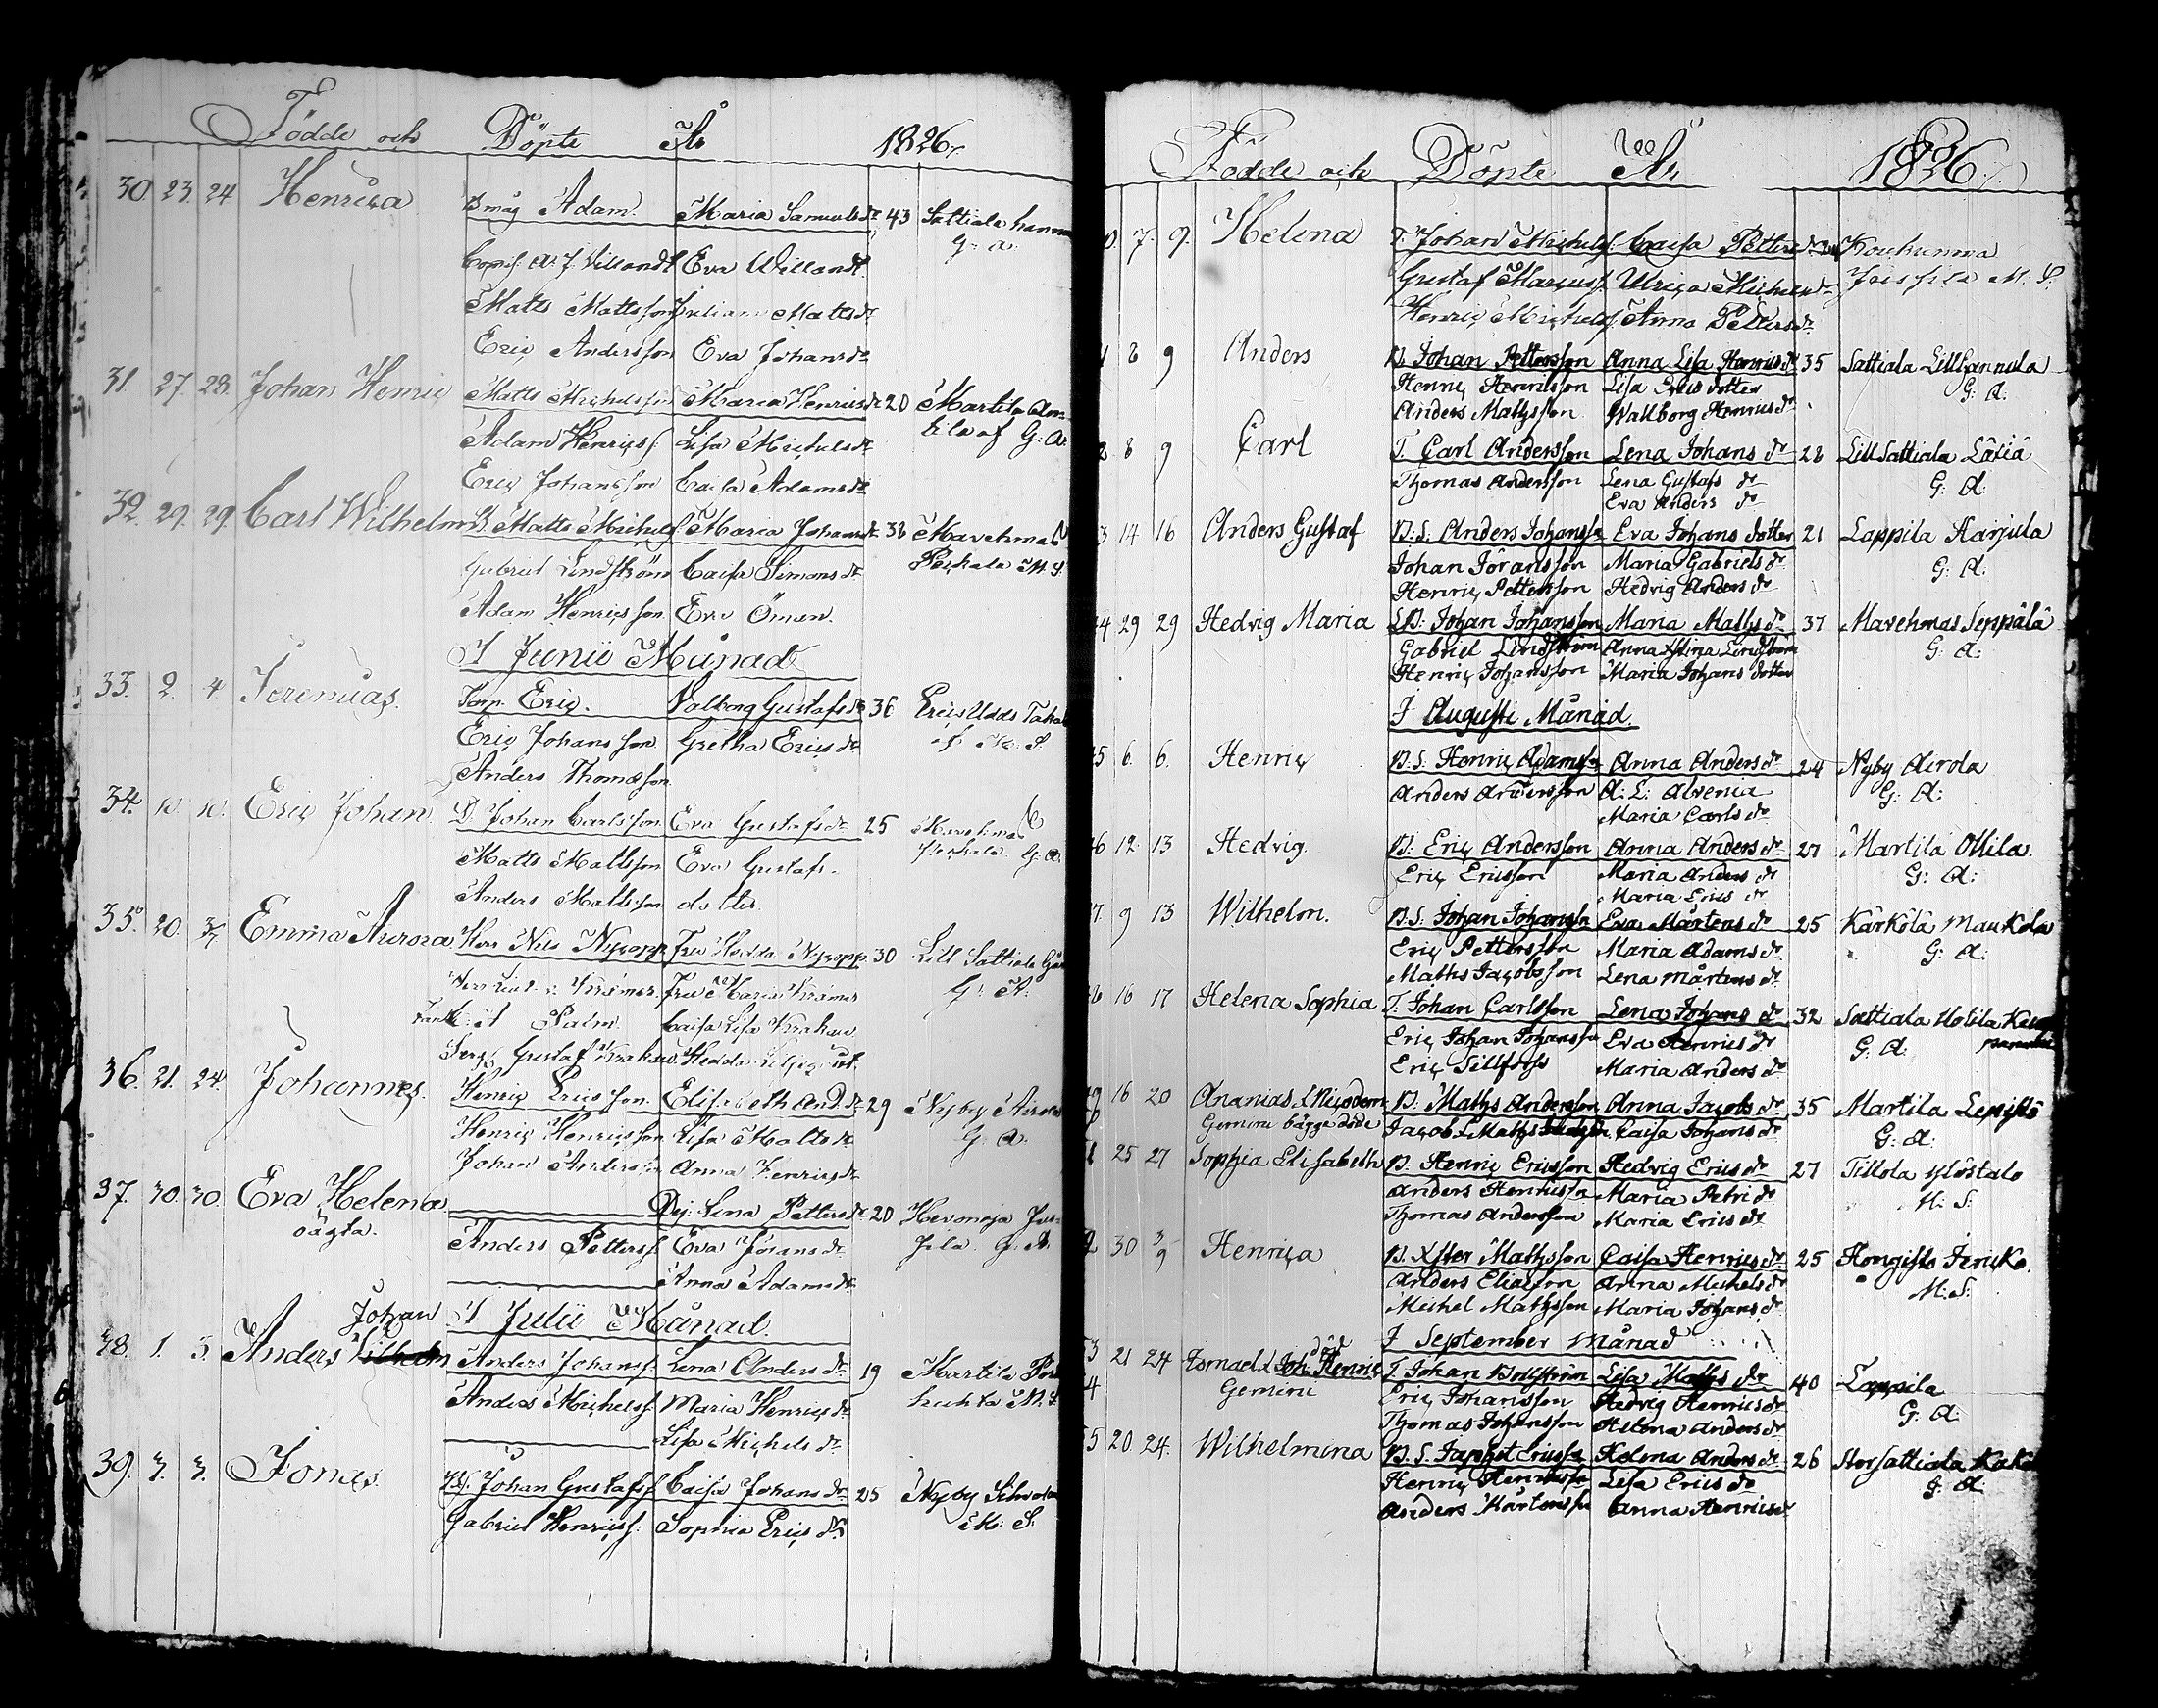 Födde och Döpte År 1826.
30. 23. 24 Henrica Bmåg Adam. Maria Samuelsdr 43 Sattiala
G: A:
A: J. Willandt Eva Willandt
Matts Mattsson Juliana Mattsdr
Eric Andersson Eva Johansdr
31. 27. 28. Johan Henric Matts Michelsson Maria Henricsdr 20 Martila
G: A:
Adam Henricss. Lisa Michelsdr
Eric Johansson Caisa Adamsdr
32. 29. 29. Carl Wilhelm B. Matts Michelss. Maria Johansdr 38 Mavehmas
Peshala M. S.
Gabriel Lindström Caisa Simonsdr
Adam Henricsson Eva Öman.
I Junii Månad
33. 2. 4 Jeremias. Torp. Eric. Valborg Gustafsdr 36 Erics Udds
M: S.
Eric Johansson Gretha Ericsdr
Anders Thomasson
34. 10. 10. Eric Johan. D. Johan Carlsson Eva Gustafsdr 25 Mavehmas
G: A:
Matts Mattsson Eva Gustafs-
Anders Mattsson dotter.
35. 20. Emma Aurora Herr Nils Nycopp Fru Hedda Nycopp 30 Lill Sattiala
G: A:
Fru Maria
Palm. Caisa Lisa Krakau
Gustaf Krakau. Hedda
36. 21. 24. Johannes. Henric Ericsson. Elisabeth And.dr 29 Nyby Airola
G: A:
Henric Henricsson Lisa Mattsdr
Johan Andersson Anna Henricsdr
37. 30. 30. Eva Helena Pig: Lena Pettersdr 20 Hevonoja Jus-
oägta.
sila G: A.
Anders Petterss. Eva Göransdr
Anna Adamsdr
I Julii Månad.
Johan
38. 1. 3. Anders Wilhelm Anders Johanss. Lena Andersdr 19 Martila
huhta M. S.
Anders Michelss. Maria Henricsdr
Lisa Michelsdr
39. 3. 3. Jonas. BS. Johan Gustafss. Caisa Johansdr 25 Nyby
M: S:
Gabriel Henricss: Sophia Ericsdr
Födde och Döpte År 1826.
0. 7. 9. Helena T. Johan Michelss. Caisa Pettersdr Kouhunma
Gustaf Marcuss. Ulrica Michelsdr Jussila M. S.
Henric Michelss. Anna Pettersdr
1 8 9 Anders B. Johan Pettersson Anna Lisa Henricsdr 35 Sattiala Lill Pannula
Henric Henricsson Lisa Erics dotter G: A:
Anders Mathsson Wallborg Henricsdr
2 8 9 Carl T. Carl Andersson Lena Johansdr 28 Lill Sattiala Lätiä
Thomas Andersson Lena Gustafsdr G: A:
Eva Andersdr
3 14 16 Anders Gustaf B: S: Anders Johansson Eva Johans dotter 21 Lappila Harjula
Johan Göransson Maria Gabrielsdr G: A:
Henric Pettersson Hedvig Andersdr
4 29 29 Hedvig Maria LB: Johan Johansson Maria Mathsdr 37 Mavehmas Seppälä
Gabriel Lindström Anna Stina Lindström G: A:
Henric Johansson Maria Johans dotter
I Augusti Månad.
5 6. 6. Henric B. S. Henric Adamsson Anna Andersdr 24 Nyby Airola
Anders Andersson A: L: Alvenia G: A:
Maria Carlsdr
6 12. 13 Hedvig. B: Eric Andersson Anna Andersdr 27 Martila Ollila.
Eric Ericsson Maria Andersdr G: A:
Maria Ericsdr
7. 9 13 Wilhelm. B. S. Johan Johansson Eva Mårtensdr 25 Kärkölä Maukola
Eric Pettersson Maria Adamsdr G: A:
Maths Jacobsson Lena Mårtensdr
8 16 17 Helena Sophia T. Johan Carlsson Lena Johansdr 32 Sattiala Uotila
Eric Johan Johansson Eva Henricsdr G: A:
Eric Sillfors Maria Andersdr
9 16 20 Ananias & Nicodem B: Maths Andersson Anna Jacobsdr 35 Martila Lepistö
Gemini bägge döde Jacob & Maths Caisa Johansdr G: A:
1 25 27 Sophia Elisabeth B: Henric Ericsson Hedvig Ericsdr 27 Tillola Yöstalo
Anders Henricsson Maria Petridr M: S:
Thomas Andersson Maria Ericsdr
2 30 3/9 Henrica B. Xster Mathsson Caisa Henricsdr 25 Hongisto
Anders Eliasson Anna Michelsdr M: S:
Michel Mathsson Maria Johansdr
I September Månad
död
3 21 24 Ismael & Joh: Henric T. Johan Lisa Mathsdr 40 Lappila
4 Gemini Eric Johansson Hedvig Henricsdr G: A:
Thomas Johansson Helena Andersdr
5 20. 24. Wilhelmina B. S. Japhet Ericsson Helena Andersdr 26 Storsattiala
Henric Henricsson Lisa Ericsdr G: A:
Anders Mårtensson Anna Henricsdr